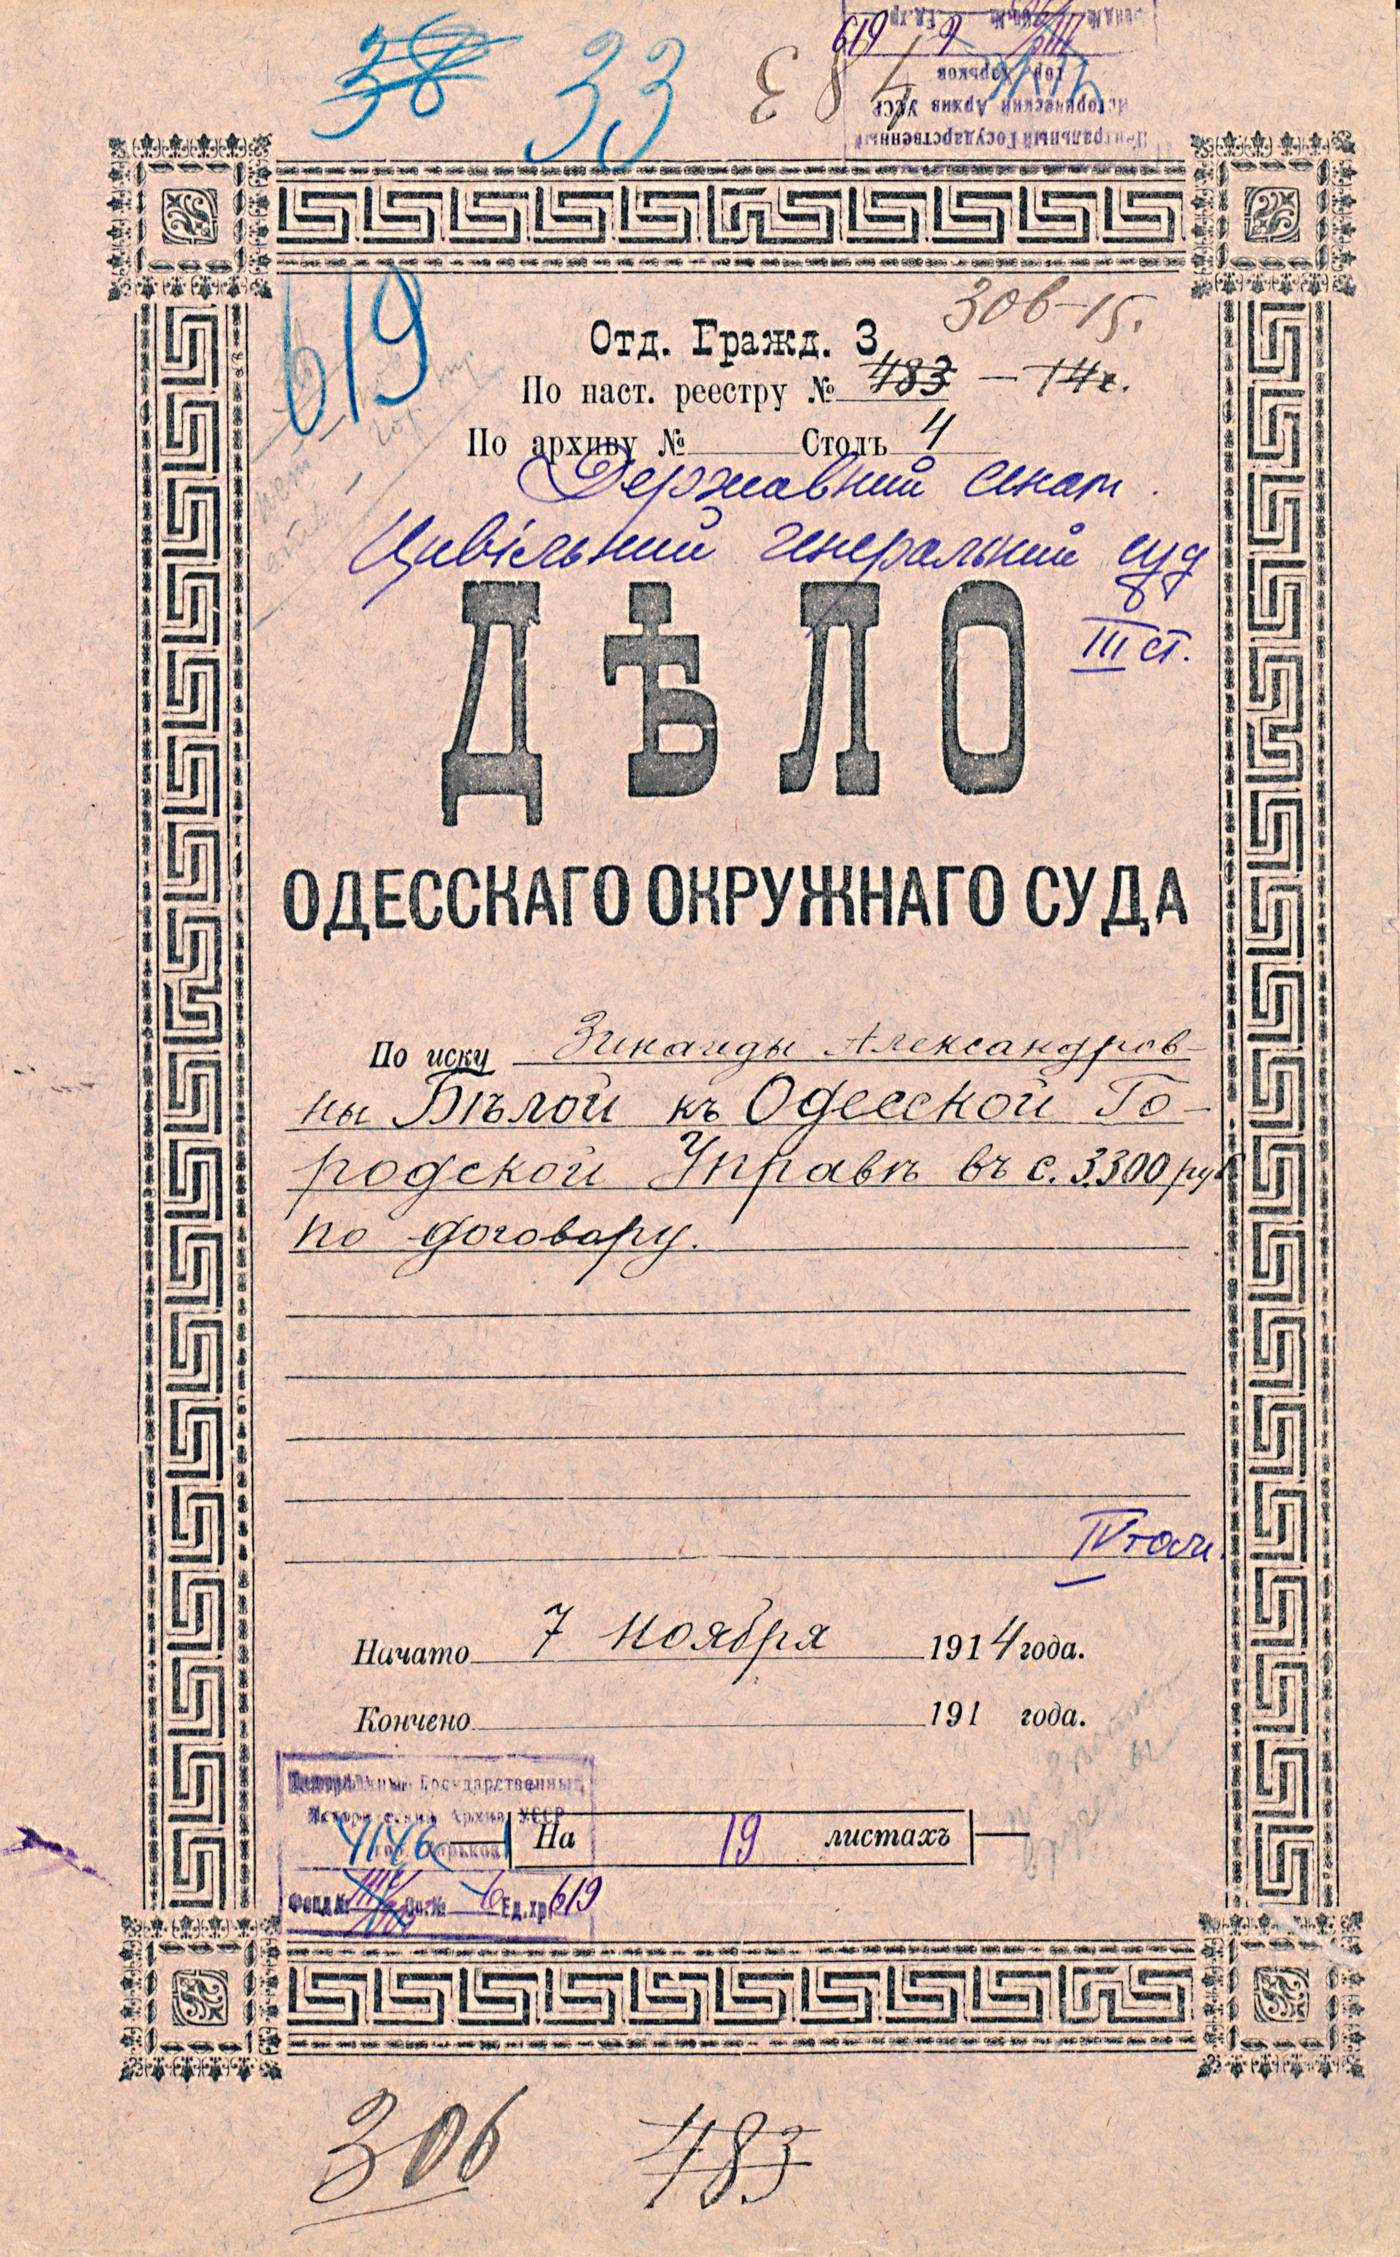 38 33 384
Центральный Государственный
Исторический Архив УССР
гор. Харьков
6 619
619
306-15.
Отд. Гражд. 3
По наст. реестру № 483 - 14 г.
По архиву № Столъ 4
Державний сенат.
Цивільний генеральний суд
III ст.
ДѢЛО
ОДЕССКАГО ОКРУЖНАГО СУДА
По иску Зинаиды Александров-
ны Бѣлой къ Одесской Го-
родской Управѣ въ с. 3300 руб
по договору.
Начато 7 ноября 1914 года.
Кончено 191 года.
Центральный Государственный
Исторический Архив УССР
гор. Харьков
На 19 листахъ
Фонд № Оп. № 6 Ед. хр. 619
306 483